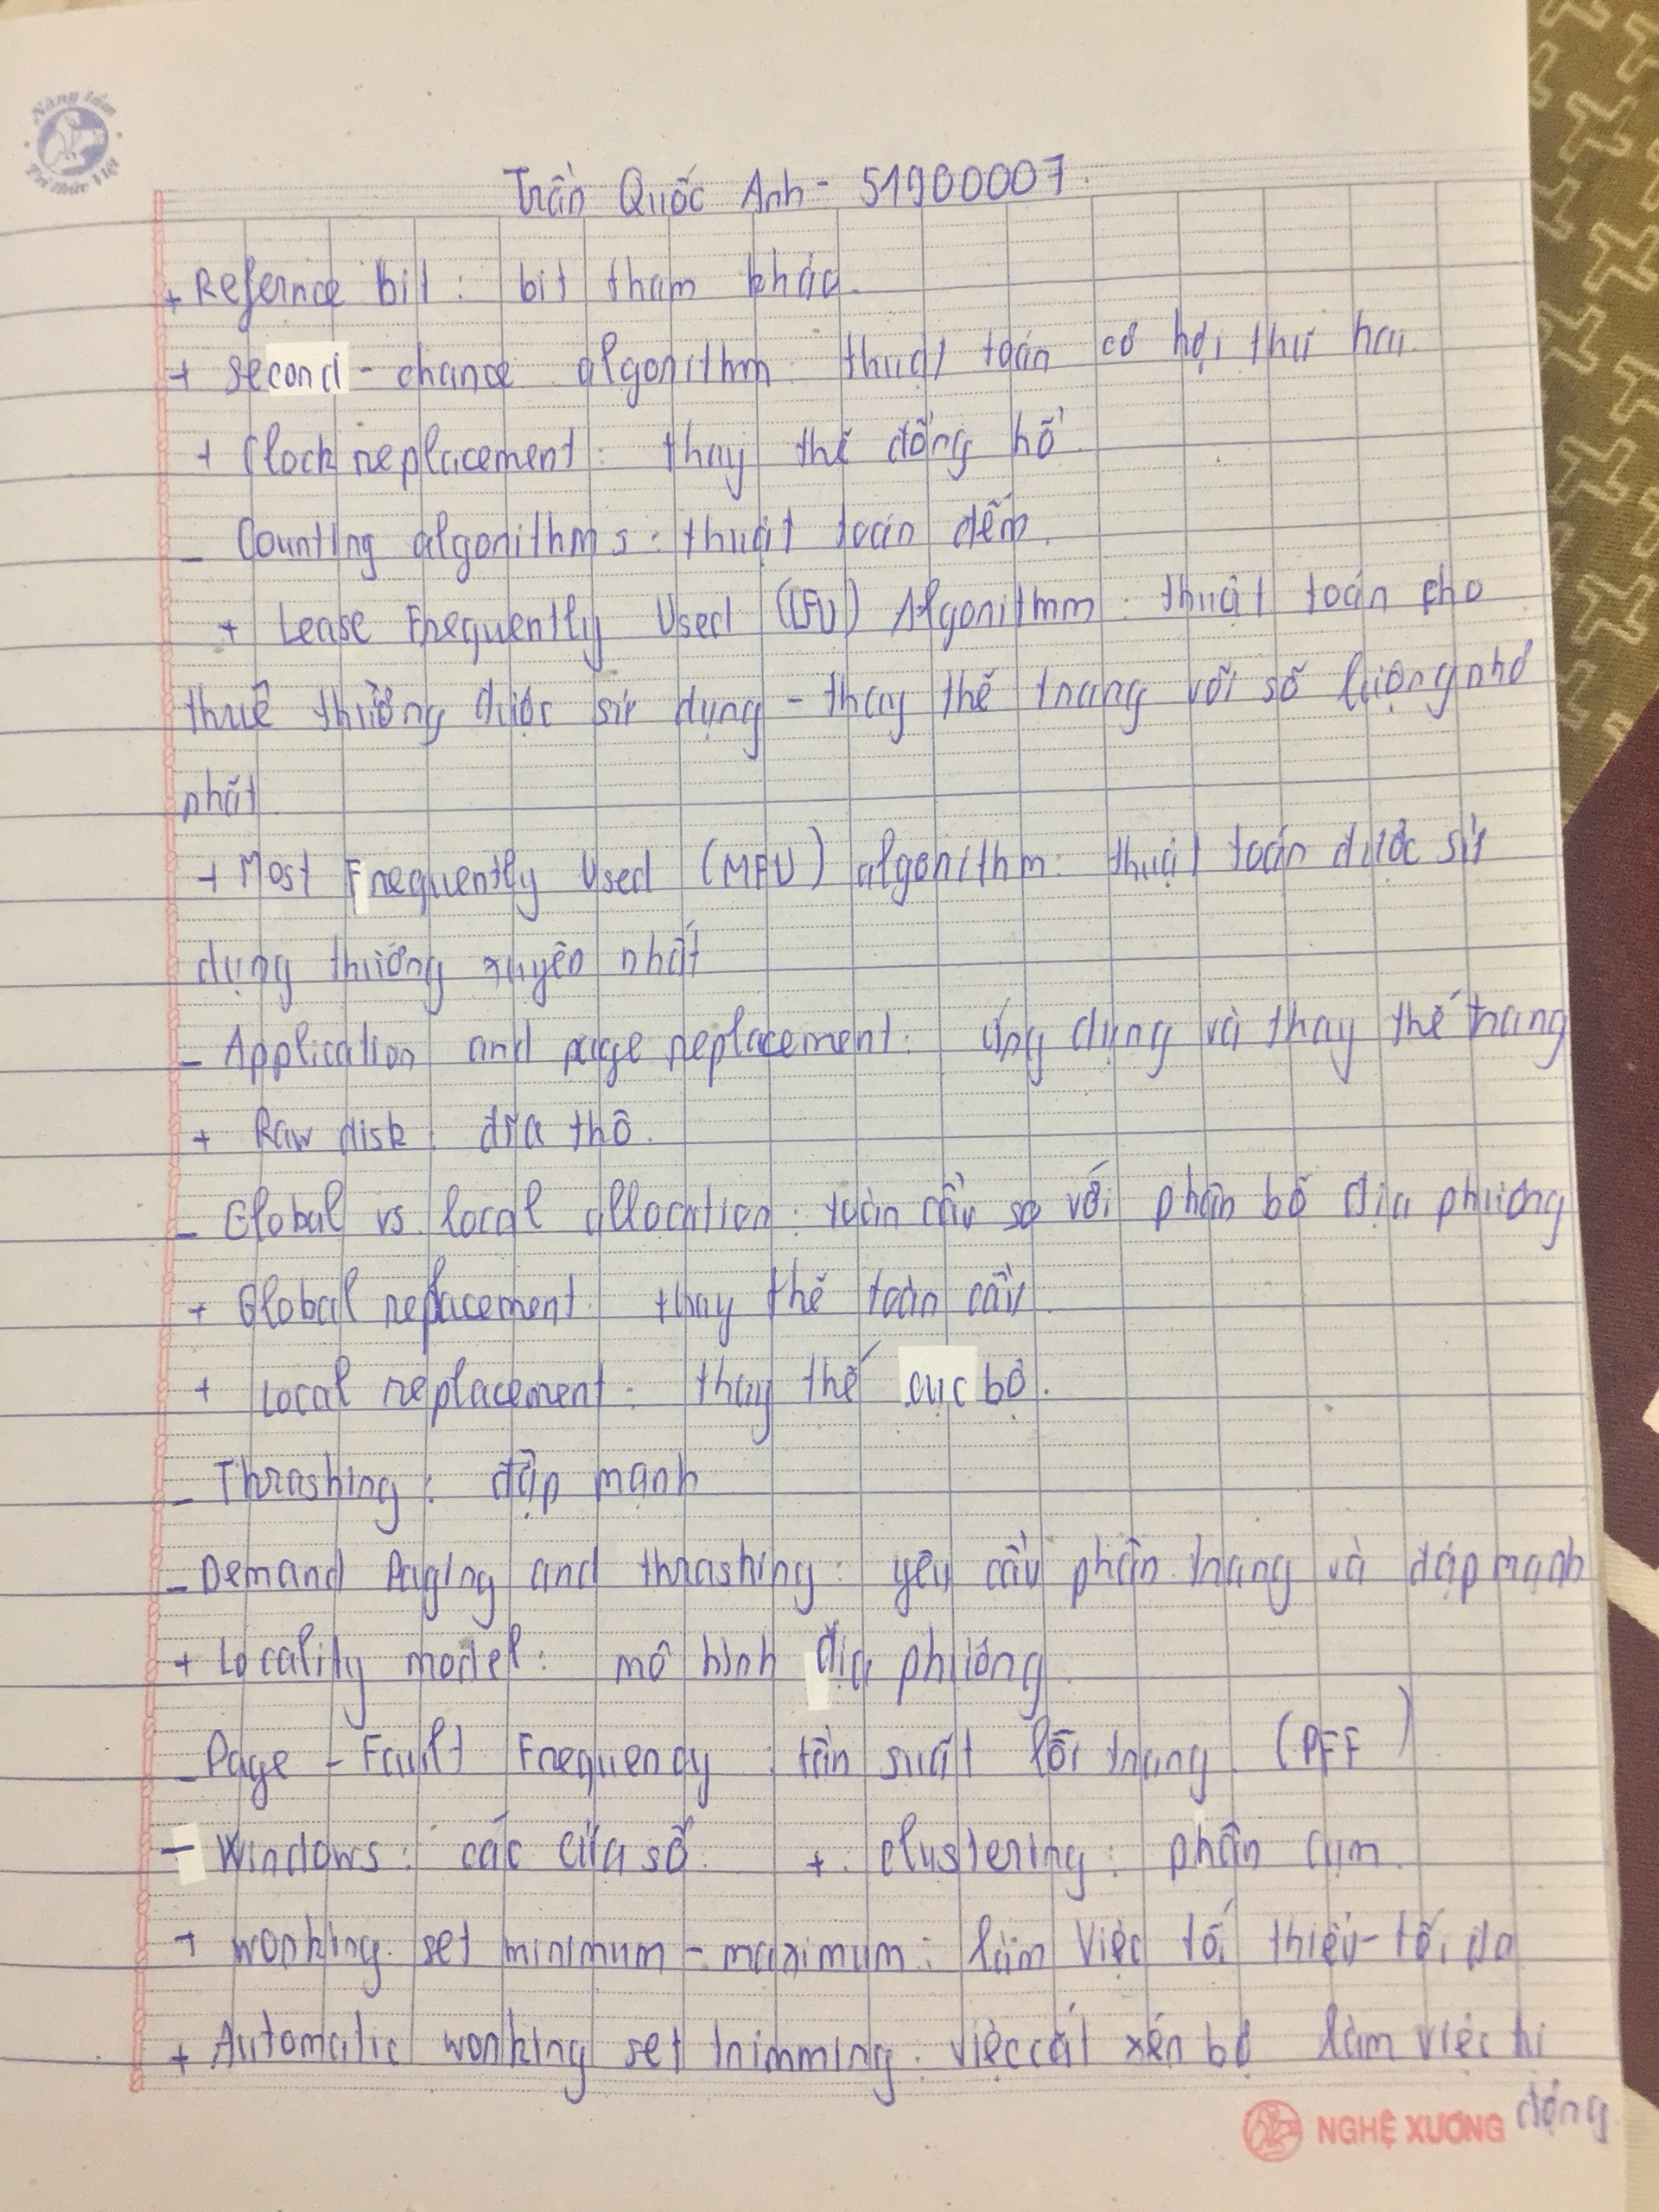 Nâng tầm
Trí thức Việt
Trần Quốc Anh - 51900007
+ Refernce bit : bit tham khảo.
+ second - chance algorithm : thuật toán cơ hội thứ hai
+ Clock replacement : thay thế đồng hồ
- Counting algorithms : thuật toán đếm.
+ Lease Frequently Used (LFU) Algorithm : thuật toán cho
thuê thường được sử dụng - thay thế trang với số lượng nhỏ
nhất
+ Most Frequently Used (MFU) algorithm : thuật toán được sử
dụng thường xuyên nhất
- Application and page replacement : ứng dụng và thay thế trang
+ Raw disk : đĩa thô.
- Global vs local allocation : toàn cầu so với phân bố địa phương
+ Global replacement : thay thế toàn cầu
+ Local replacement : thay thế cục bộ.
- Thrashing : đập mạnh
- Demand Paging and thrashing : yêu cầu phân trang và đập mạnh
+ Locality model : mô hình địa phương
- Page - Fault Frequency : tần suất lỗi trang (PFF)
- Windows : các cửa sổ. + Clustering : phân cụm
+ working set minimum - maximum : làm việc tối thiểu - tối đa
+ Automatic working set trimming : việc cắt xén bộ làm việc tự
động
NGHỆ XƯƠNG